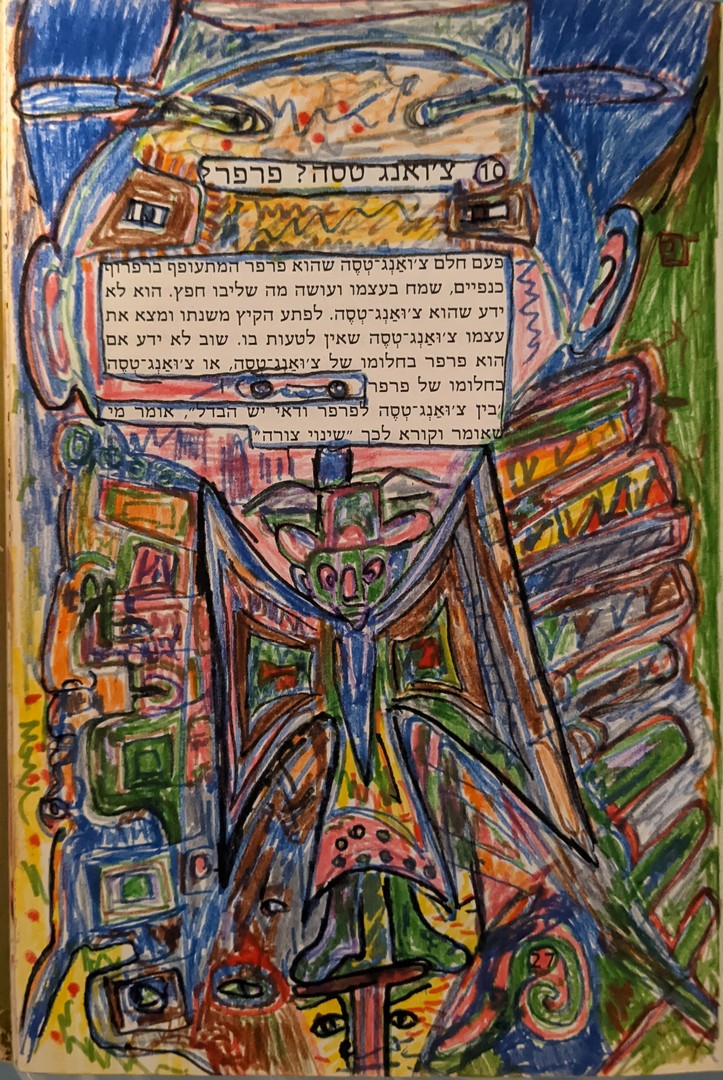 10 צ׳ואנג טסה? פרפר?
פעם חלם צ׳וּאַנְג־טְסֶה שהוא פרפר המתעופף ברפרוף
כנפיים, שמח בעצמו ועושה מה שליבו חפץ. הוא לא
ידע שהוא צ׳וּאַנְג־טְסֶה. לפתע הקיץ משנתו ומצא את
עצמו צ׳וּאַנְג־טְסֶה שאין לטעות בו. שוב לא ידע אם
הוא פרפר בחלומו של צ׳וּאַנְג־טְסֶה, או צ׳וּאַנְג־טְסֶה
בחלומו של פרפר
בין צ׳וּאַנְג־טְסֶה לפרפר ודאי יש הבדל״, אומר מי
שאומר וקורא לכך ״שינוי צורה״
27